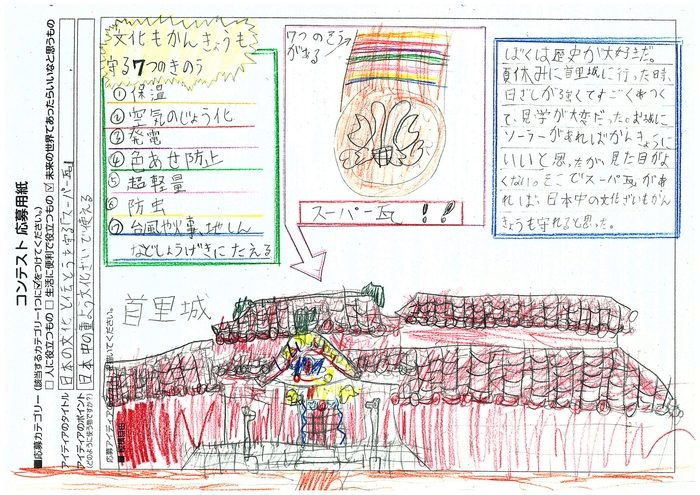 コンテスト 応募用紙
■応募カテゴリー(該当するカテゴリー1つに☑をつけてください。)
□ 人に役立つもの □ 生活に便利で役立つもの ☑ 未来の世界であったらいいなと思うもの
アイディアのタイトル 日本の文化と伝とうを守る「スーパー瓦」
アイディアのポイント 日本中の重よう文化ざいで使える
(どのように使う物ですか?)
文化もかんきょうも
守る7つのきのう
①保温
②空気のじょう化
③発電
④色あせ防止
⑤超軽量
⑥防虫
⑦台風や火事、地しん
などしょうげきにたえる
7つのそう
がある
スーパー瓦!!
ぼくは歴史が大好きだ。
夏休みに首里城に行った時、
日ざしが強くてすごくあつく
て、見学が大変だった。お城に
ソーラーがあればかんきょうに
いいと思ったが、見た目がよ
くない。そこでスーパー瓦があ
れば、日本中の文化ざいもかん
きょうも守れると思った。
首里城